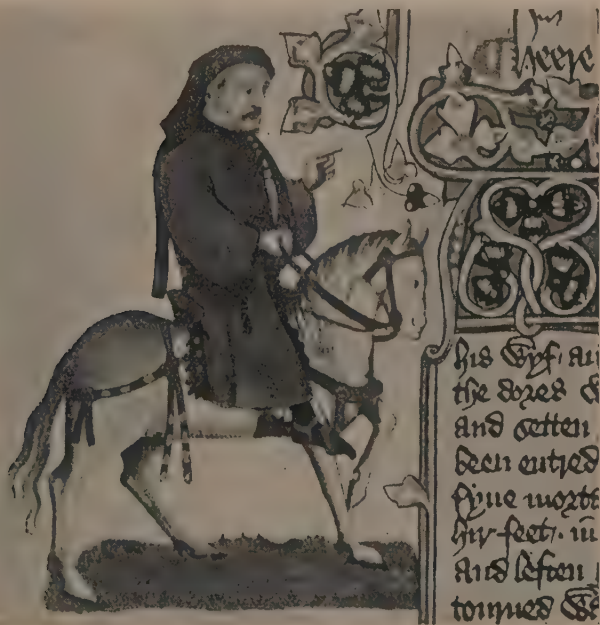 heere
his Wyf· an
the dores
and setten
been entred
fyue morta
hir feet· in
And leften
tourned